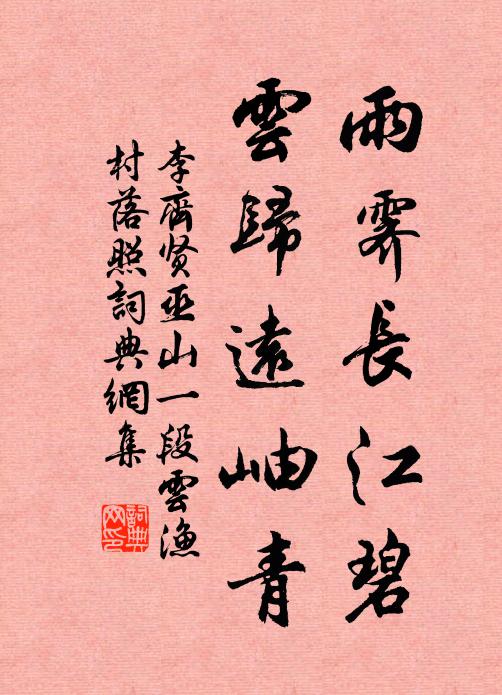 雨霽長江碧
雲歸遠岫青
李齊贤巫山一段雲漁
村落照詞典網集
詞典网印